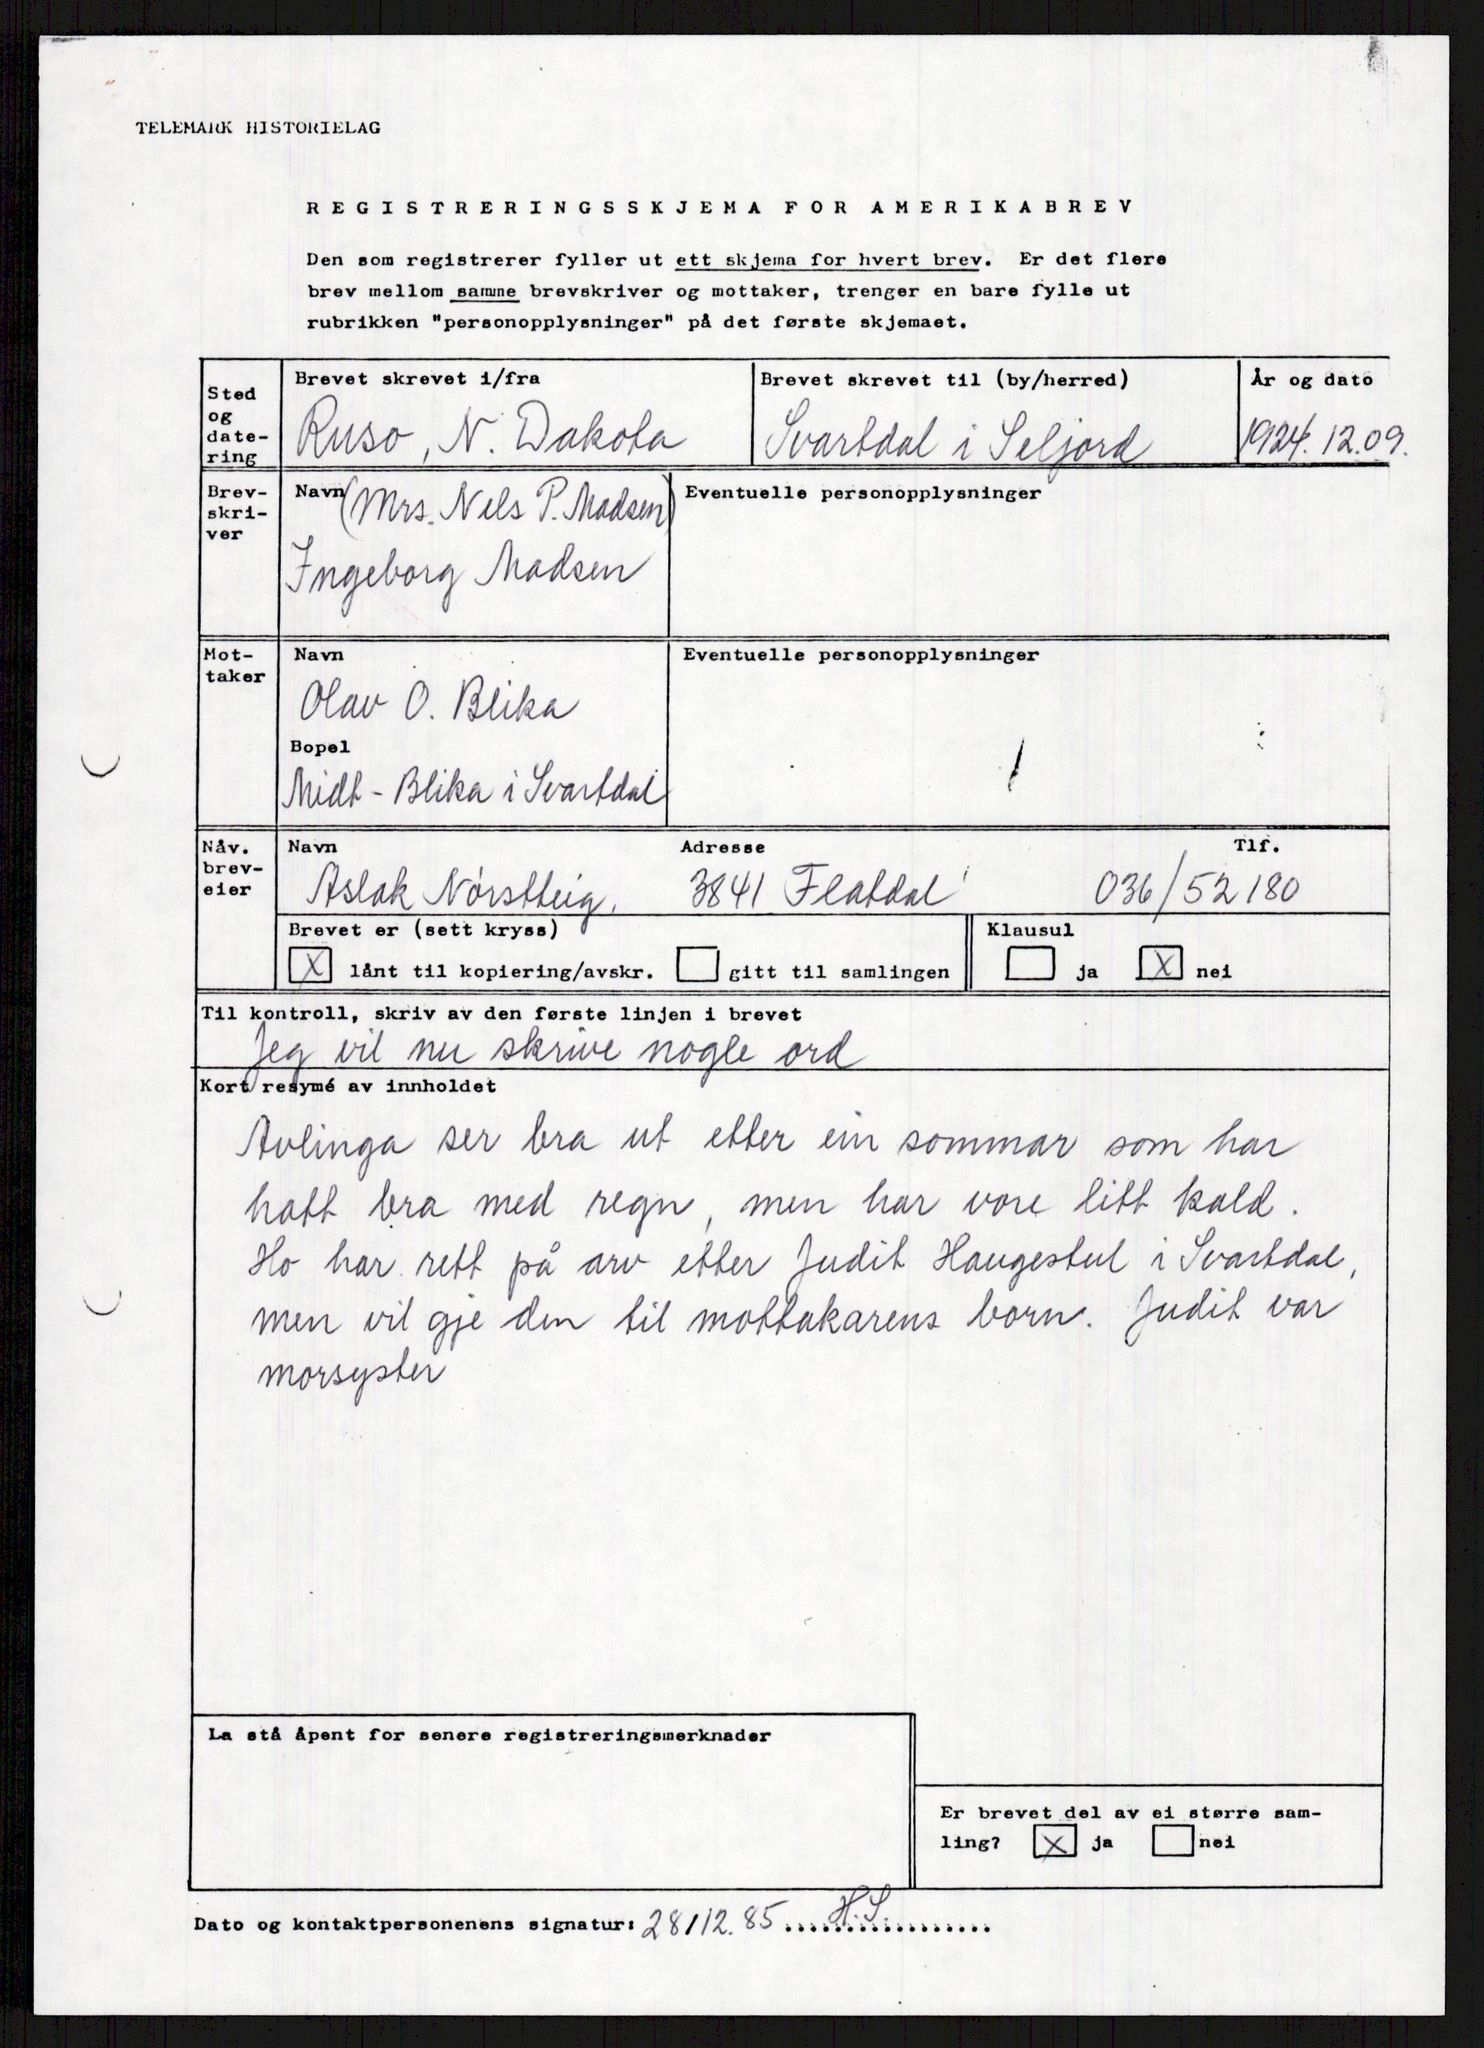 TELEMARK HISTORIELAG
REGISTRERINGSSKJEMA FOR AMERIKABREV
Den som registrerer fyller ut ett skjema for hvert brev. Er det flere
brev mellom samme brevskriver og mottaker, trenger en bare fylle ut
rubrikken "personopplysninger" på det første skjemaet.
Sted
og
date-
ring
Brevet skrevet i/fra
Ruso, N. Dakota
Brevet skrevet til (by/herred)
Svartdal i Seljord
År og dato
1924.12.09.
Brev-
skri-
ver
Navn (Mrs. Nels P. Madsen)
Ingeborg Madsen
Eventuelle personopplysninger
Mot-
taker
Navn
Olav O. Blika
Bopel
Midt-Blika i Svartdal
Eventuelle personopplysninger
Nåv.
brev-
eier
Navn
Aslak Nørstteig,
Adresse
3841 Flatdal
Tlf.
036/52180
Brevet er (sett kryss)
X lånt til kopiering/avskr. gitt til samlingen
Klausul
ja X nei
Til kontroll, skriv av den første linjen i brevet
Jeg vil nu skrive nogle ord
Kort resymé av innholdet
Avlinga ser bra ut etter ein sommar som har
hatt bra med regn, men har vore litt kald.
Ho har rett på arv etter Judit Haugestul i Svartdal,
men vil gje den til mottakarens born. Judit var
morsyster
La stå åpent for senere registreringsmerknader
Er brevet del av ei større sam-
ling? X ja nei
Dato og kontaktpersonenens signatur: 28/12.85 H.S.